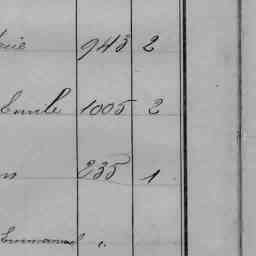 943 2
Emile 1005 2
235 1
Emmanuel